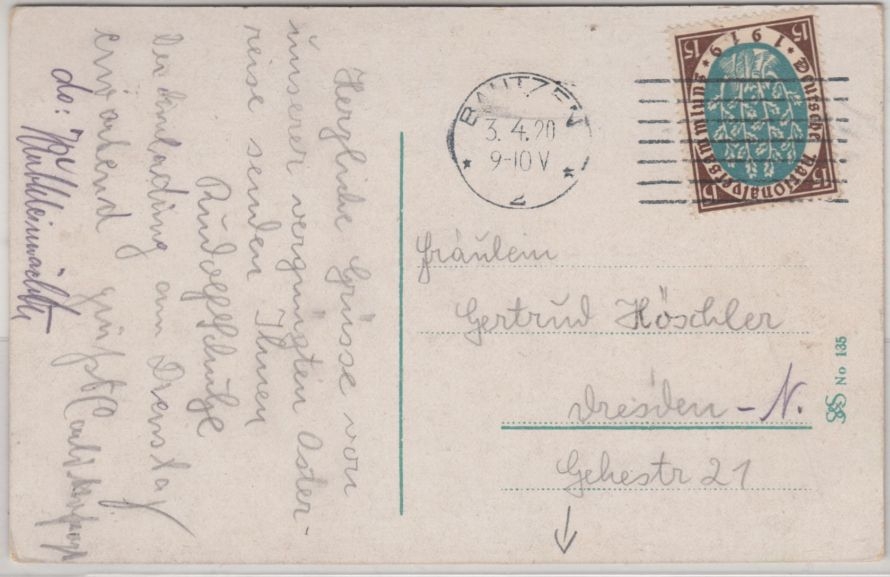 Herzliche Grüsse von
unserer vergnügten Oster-
reise senden Ihnen
Rudolf Schulze
Der Einladung am Dienstag
erwartend grüßt
do:
BAUTZEN
3. 4. 20
9-10 V
2
1919
Deutsche Nationalversammlung
15
15
15
15
Fräulein
Gertrud Höschler
Dresden - N.
Gehestr 21
No 135